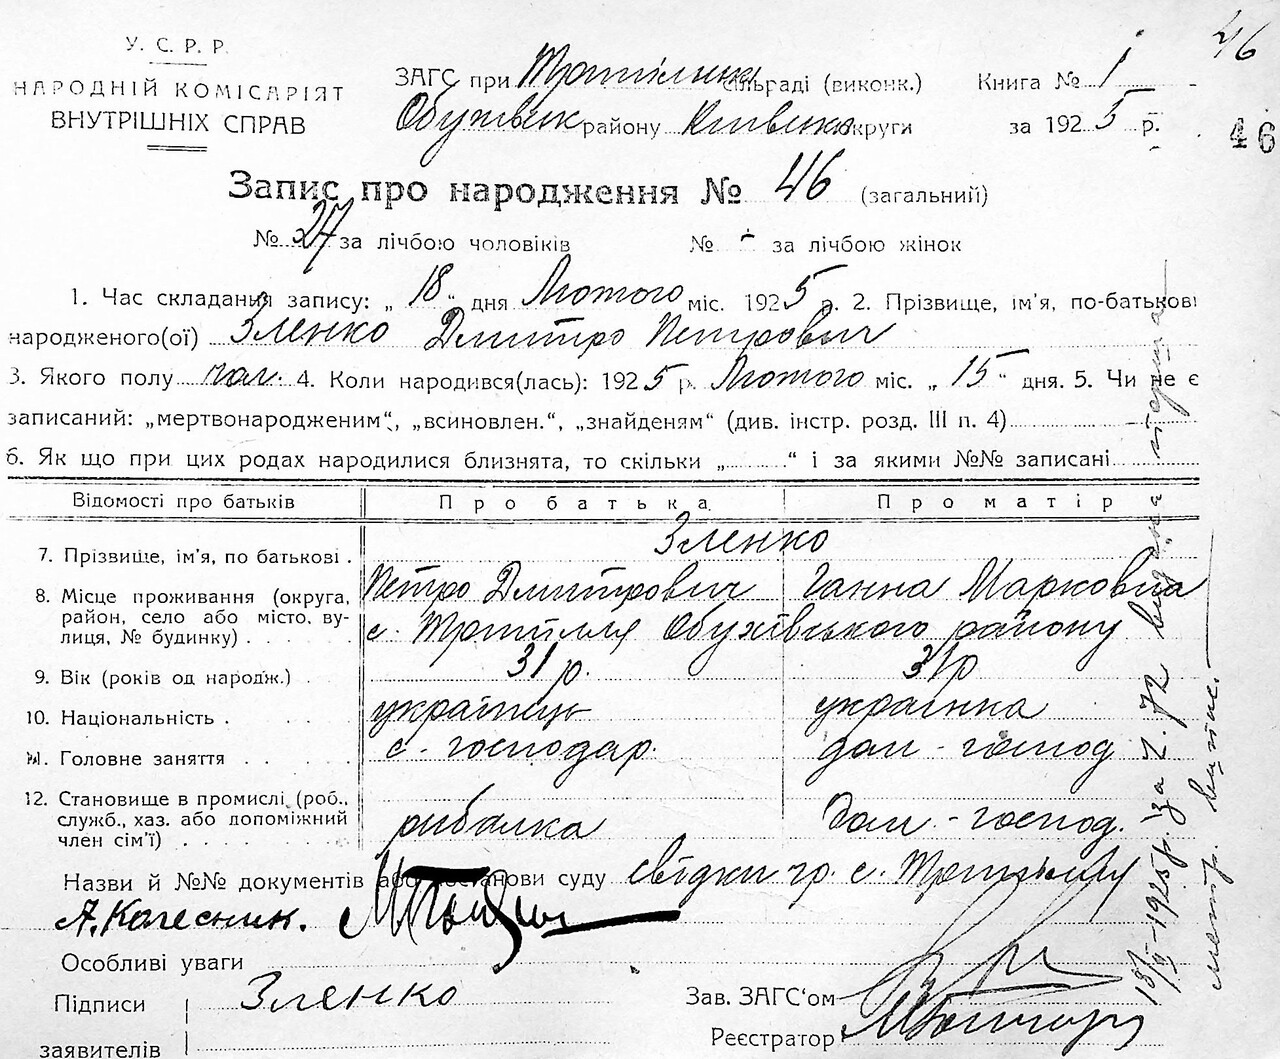 46
У. С. Р. Р.
НАРОДНІЙ КОМІСАРІЯТ
ВНУТРІШНІХ СПРАВ
ЗАГС при сільраді (виконк.)
району округи
Книга № 1
за 1925 р.
46
Запис про народження № 46 (загальний)
№ 27 за лічбою чоловіків № - за лічбою жінок
1. Час складання запису: „18" дня Лютого міс. 1925 р. 2. Прізвище, ім'я, по-батькові
народженого(ої) Зленко Дмитро Петрович
3. Якого полу чол. 4. Коли народився(лась): 1925 р. Лютого міс. „15" дня. 5. Чи не є
записаний: „мертвонародженим", „всиновлен.", „знайденям" (див. інстр. розд. III п. 4)
6. Як що при цих родах народилися близнята, то скільки „ " і за якими №№ записані
Відомості про батьків Про батька Про матір
Зленко
7. Прізвище, ім'я, по батькові .
Петро Дмитрович Ганна Марковна
8. Місце проживання (округа,
район, село або місто, ву-
лиця, № будинку) . . .
с. Трипілля Обухівського району
9. Вік (років од народж.) . 31 р. 31 р
10. Національність . . . . українець українка
11. Головне заняття . . . . с-господар. дом-господ
12. Становище в промислі (роб.,
служб., хаз. або допоміжний
член сім'ї) . . . . .
рибалка Дом-господ.
Назви й №№ документів або постанови суду свідки гр. с. Трипілля
А. Колесник.
Особливі уваги
Підписи
заявителів
Зленко
Зав. ЗАГС'ом
Реєстратор
1925 р. за ч. 72 видана перша
метр. витис.